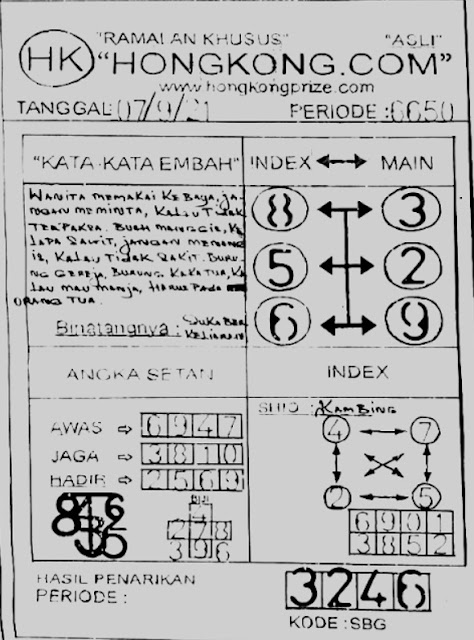 "RAMALAN KHUSUS" "ASLI"
HK "HONGKONG.COM"
www.hongkongprize.com
TANGGAL: 07/9/21 PERIODE : 6650
"KATA-KATA EMBAH" INDEX ↔ MAIN
WANITA MEMAKAI KEBAYA, JA-
NGAN MEMINTA, KALAU TIDAK
TERPAKSA. BUAH MANGGIS, KE
LAPA SAWIT, JANGAN MENANG
IS, KALAU TIDAK SAKIT. BURU-
NG GEREJA, BURUNG KAKATUA, KA
LAU MAU MANJA, HARUS PADA
ORANG TUA.
Binatangnya : SUKA BER
KELIARAN
8 3
5 2
6 9
ANGKA SETAN INDEX
AWAS ⇨ 6947
JAGA ⇨ 3810
HADIR ⇨ 2569
BIJI
278
396
SHIO : KAMBING
4 7
2 5
6901
3852
HASIL PENARIKAN
PERIODE :
3246
KODE : SBG